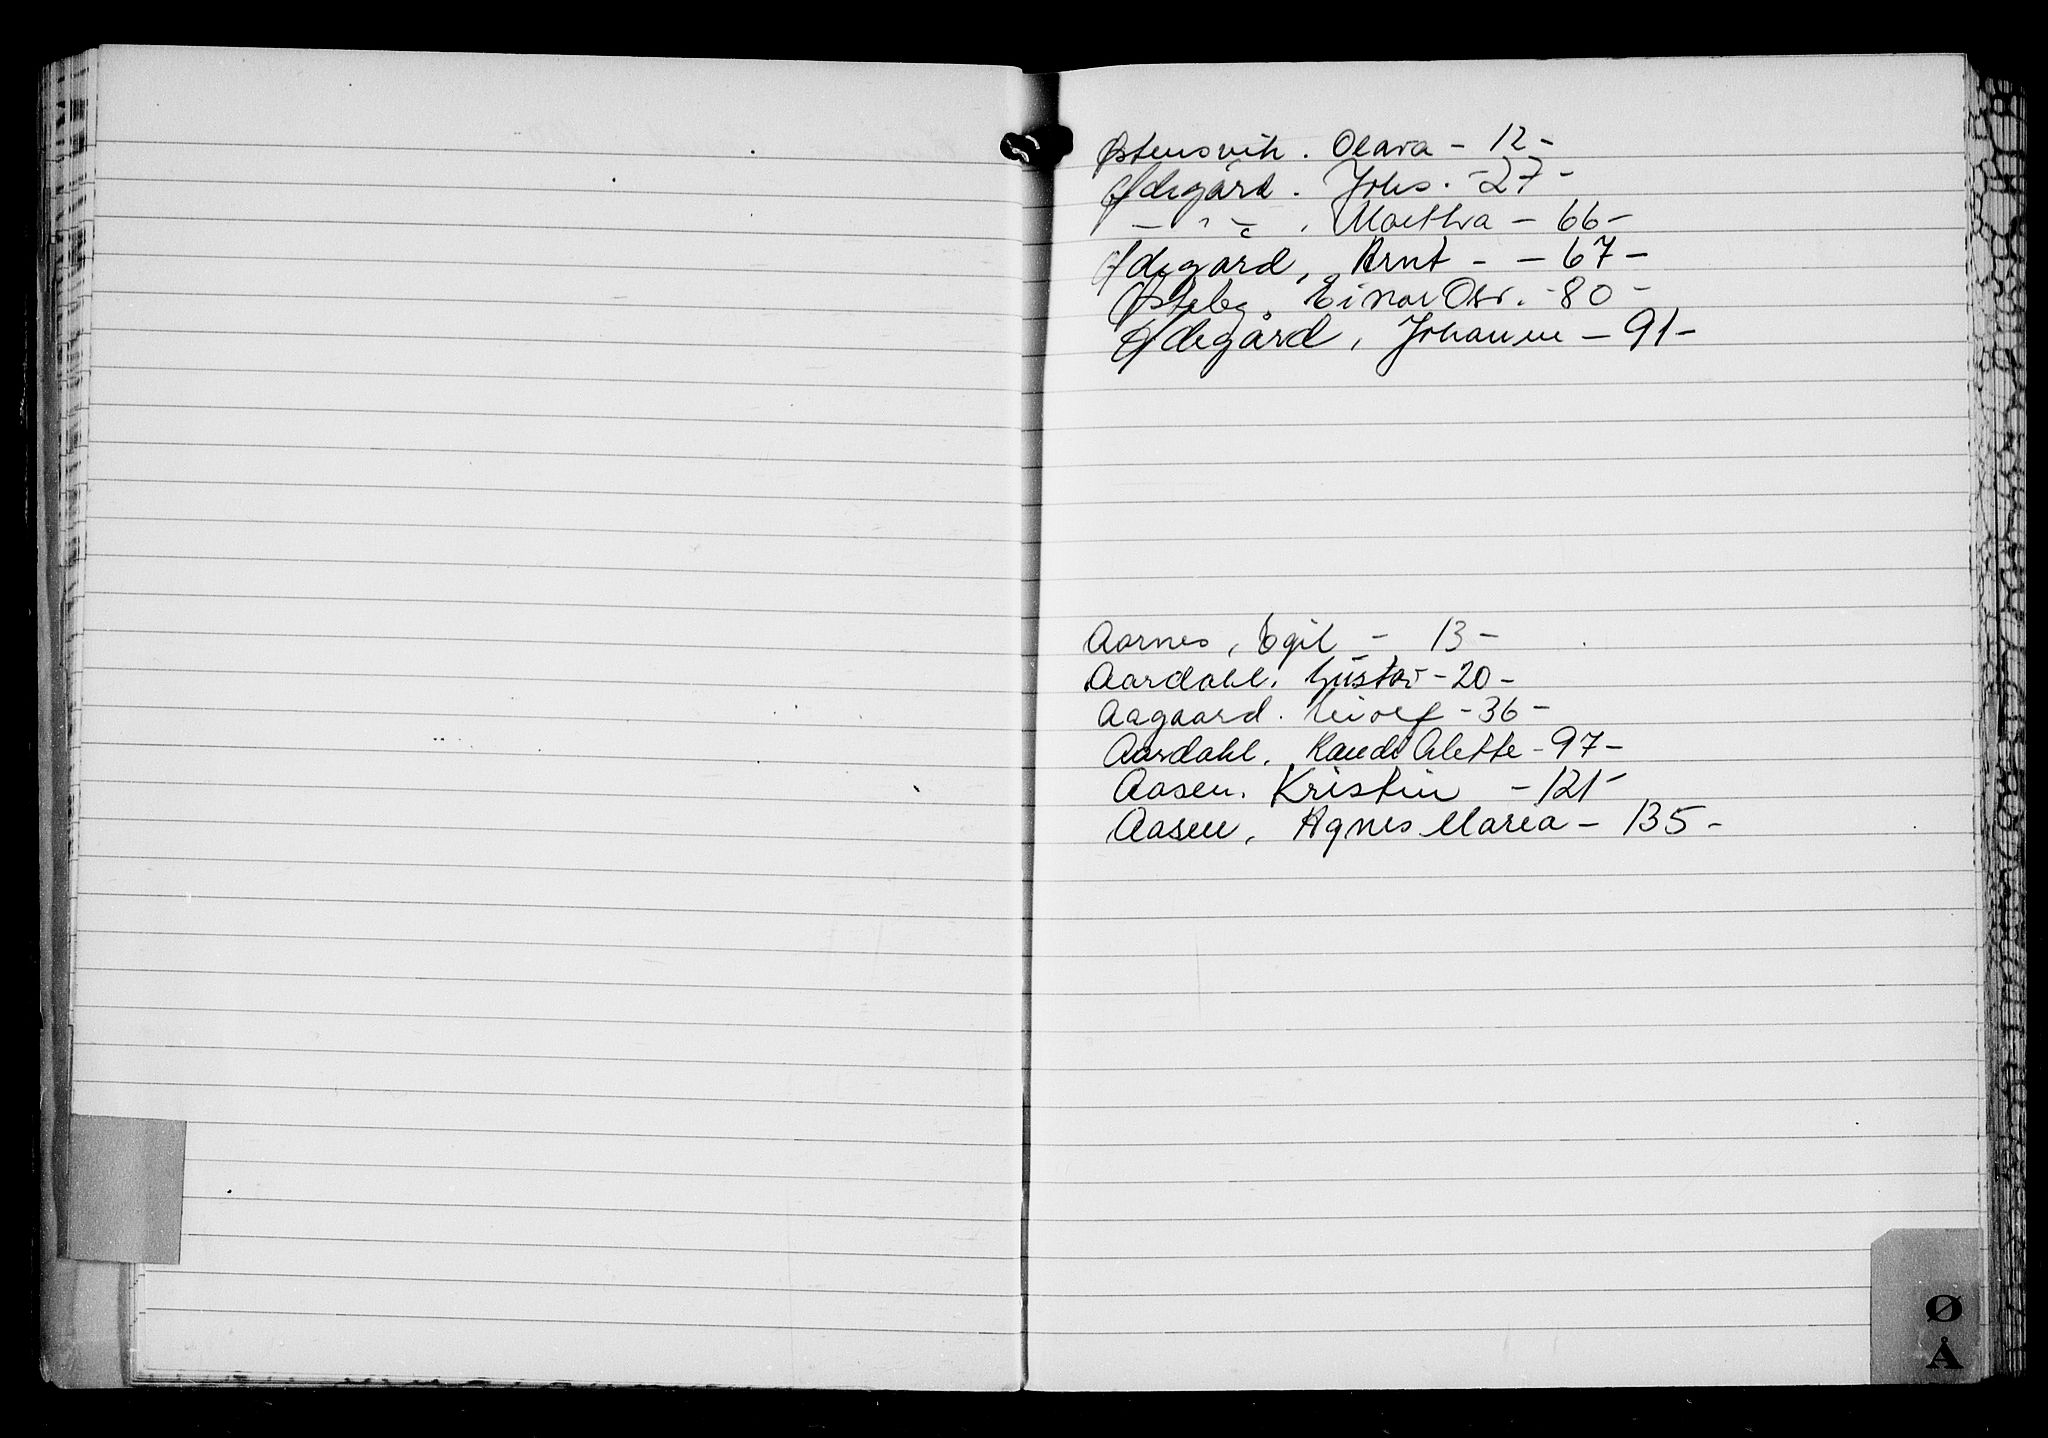 Østensvik. Olava - 12 -
Ødegård. Johs. - 27 -
- " - . Marthva - 66 -
Ødegard, Arnt - - 67 -
Østeby. Einar Osv. - 80 -
Ødegård, Johanne - 91 -
Aarnes, Egil - 13 -
Aardahl. Gustav - 20 -
Aagaard. Leiolf - 36 -
Aardahl. Randi Alette - 97 -
Aasen. Kristin - 121 -
Aasen, Agnes Maria - 135 -
Ø
Å